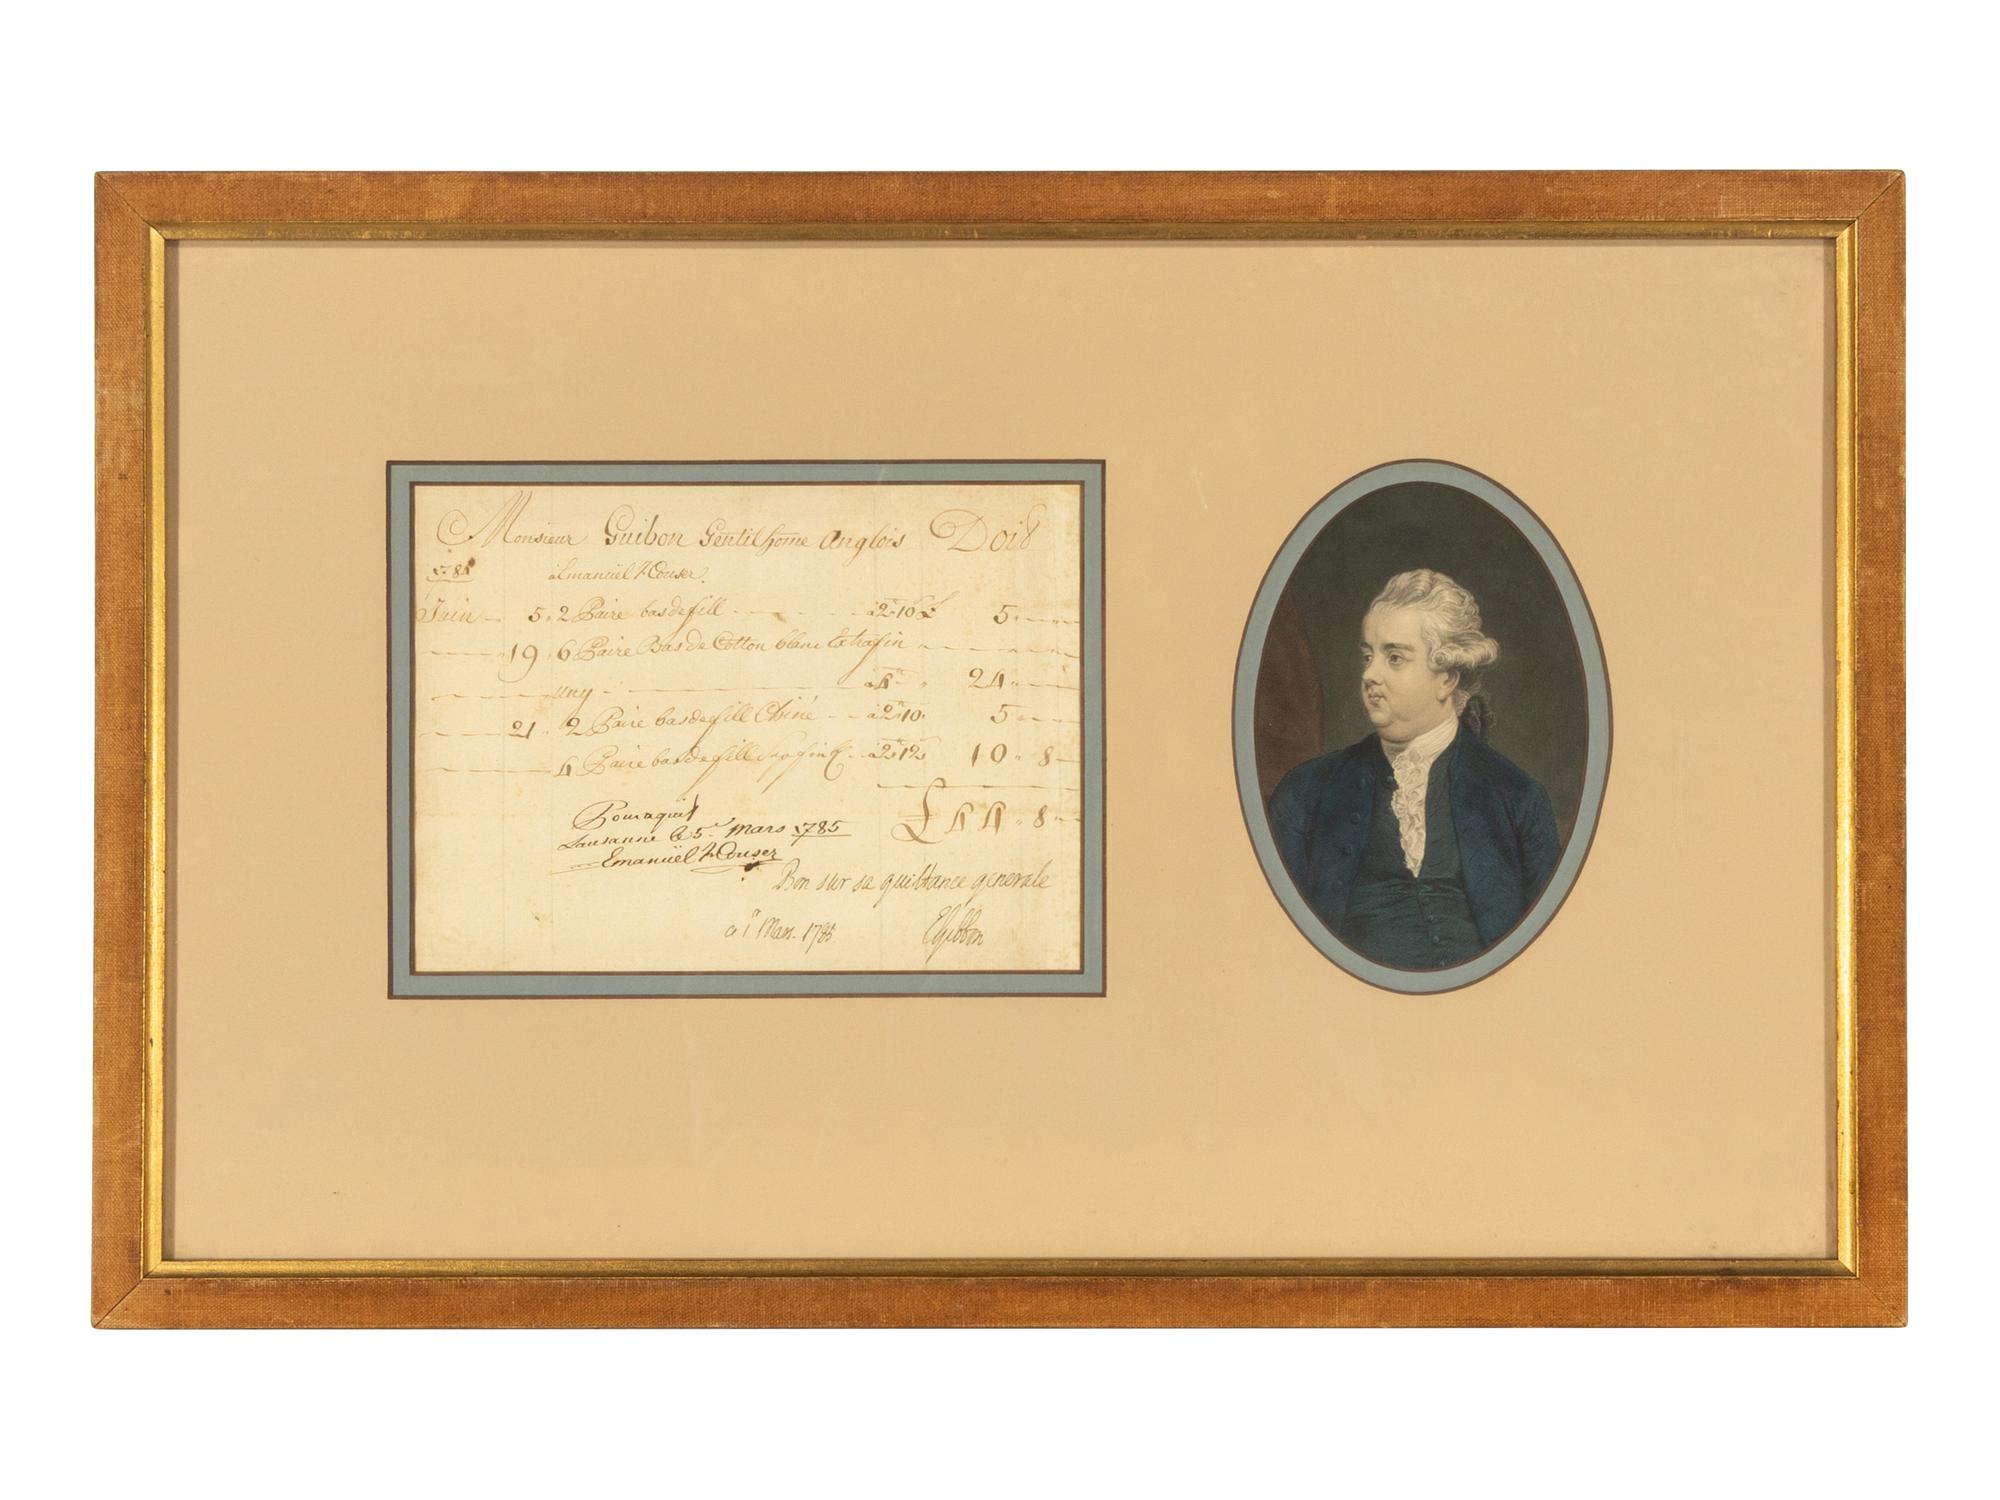 Monsieur Guibon Gentilhome Anglois Doit
1784
à Emanüel Couser.
Juin 5 2 Paire bas de fill à 2 10 5
19 6 Paire Bas de Cotton blanc Extrafin
uny à 4 24
21 2 Paire bas de fill Chiné à 2 10 5
4 Paire bas de fill à 2 12 10 8
£ 44 8
Pour aquit
Lausanne le 5 Mars 1785
Emanüel Couser
Bon sur sa quittance generale
a Mars. 1785 EGibbon